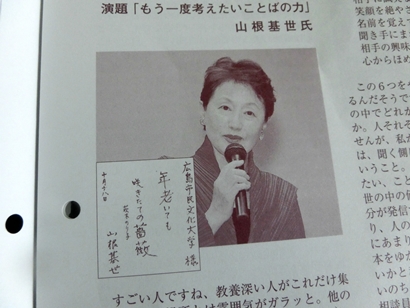 演題「もう一度考えたいことばの力」
山根基世氏
広島市民文化大学 様
年老いても
咲きたての薔薇
十月十八日
山根基世
相手に
笑顔を絶や
名前を覚え
聞き手にま
相手の興味
心からほめ
この6つを
るんだそうで
の中でどれか
か。人それぞ
せんが、私が
は、聞く側
いうこと。
たい、こと
世の中の
分が発信
り、人の
にあまり
本をゆが
いかと
いのね、
相談員
すごい人ですね、教養深い人がこれだけ集
は雰囲気がガラッと。他の